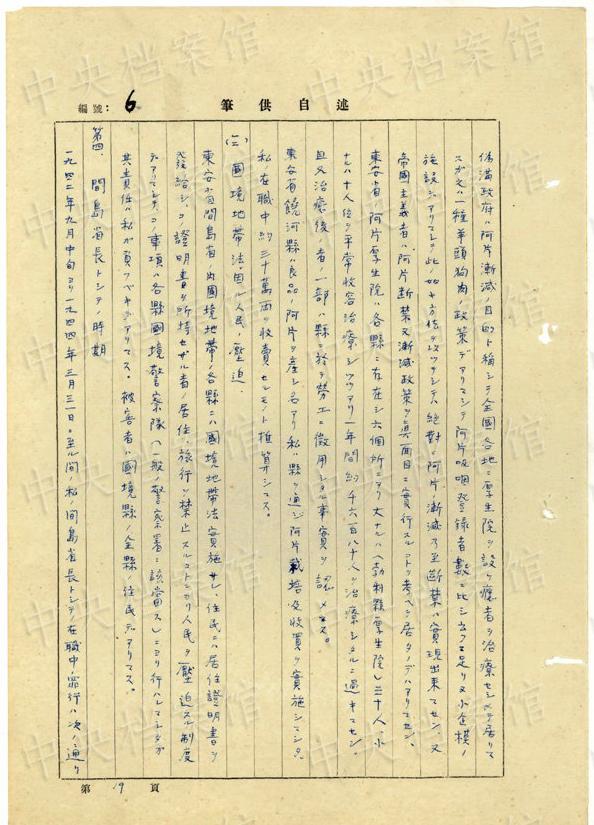 述自供筆
編號：6
偽満政府ハ阿片漸減ノ目的ト称シテ全国各地ニ厚生院ヲ設ケ癮者ヲ治療セシメテ居リマ
スガ之ハ一種羊頭狗肉ノ政策デアリマシテ阿片吸咽登録者数ニ比シ
施設デアリマシテ此ノ如キ方法ヲ以ツテシテハ絶対ニ阿片ノ漸減乃至断禁ハ実現出来マセン、又
帝国主義者ハ阿片断禁又漸減政策ヲ真面目ニ実行スルコトヲ考ヘテ居タノデハアリマセン、
東安省ノ阿片厚生院ハ各縣ニ存在シ六個所ニアリ大ナルハ（勃利縣厚生院）三十人、小
ナルハ十人位ヲ平常收容治療シツツアリ一年間約千六百八十人ヲ治療シタルニ過ギマセン。
且又治療後ノ者ノ一部ハ縣ニ於テ労工ニ徴用シタル事実ヲ認メマス。
東安省饒河縣ハ良品ノ阿片ヲ産シ名アリ私ハ縣ヲ通ジ阿片栽培及收買ヲ実施シマシタ、
私ノ在職中約三十萬両ヲ收買セルモノト推算シマス。
(二) 國境地帶法ニ因ル人民ノ壓迫、
東安省間島省内國境地帶ノ各縣ニハ國境地帶法実施サレ、住民ニハ居住證明書ヲ
発給シ、コノ證明書ヲ所持セザル者ノ居住、旅行ヲ禁止スルコトニヨリ人民ヲ壓迫スル制度
デアリマシタ、コノ事項ハ各縣國境警察隊（一般ノ警察署モ該當ス）ニヨリ行ハレマシタガ
其責任ハ私ガ負フベキデアリマス。被害者ハ國境縣ノ全縣ノ住民デアリマス。
第四、間島省長トシテノ時期
一九四二年九月中旬ヨリ一九四四年三月三一日ニ至ル間ノ私ノ間島省長トシテノ在職中ノ罪行ハ次ノ通リ
第 19 頁
中央档案馆